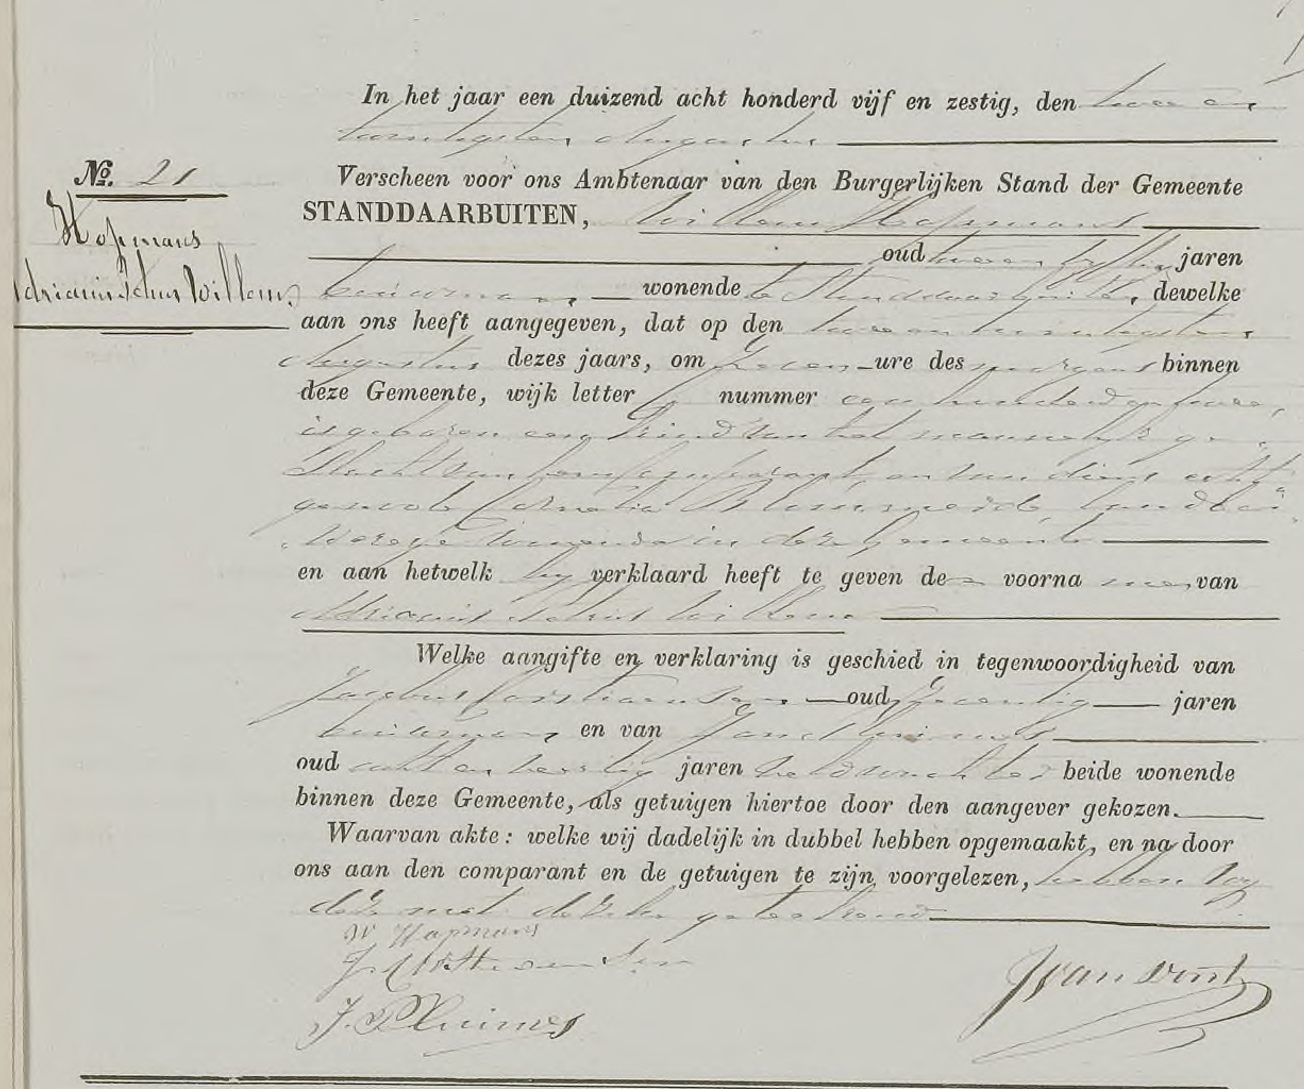 In het jaar een duizend acht honderd vijf en zestig, den twee en
twintigsten Augustus
No. 21
Verscheen voor ons Ambtenaar van den Burgerlijken Stand der Gemeente
STANDDAARBUITEN, Willem Hopmans
Hopmans
oud jaren
Adrianus Johns Willem.
bouwman, wonende te Standdaarbuiten, dewelke
aan ons heeft aangegeven, dat op den twee en twintigsten
Augustus dezes jaars, om zeven ure des morgens binnen
deze Gemeente, wijk letter nummer een honderd en twee,
is geboren een kind van het mannelijk ge-
slacht van hem comparant, en van diens echt-
genoote Cornelia
wonende in deze Gemeente
en aan hetwelk hij verklaard heeft te geven de voorna men van
Adrianus Johns Willem
Welke aangifte en verklaring is geschied in tegenwoordigheid van
Jacobus oud zeventig jaren
en van Jan
oud acht en veertig jaren veldwachter beide wonende
binnen deze Gemeente, als getuigen hiertoe door den aangever gekozen.
Waarvan akte: welke wij dadelijk in dubbel hebben opgemaakt, en na door
ons aan den comparant en de getuigen te zijn voorgelezen, hebben zij
deze met geteekend
W Hopmans
J.
J.